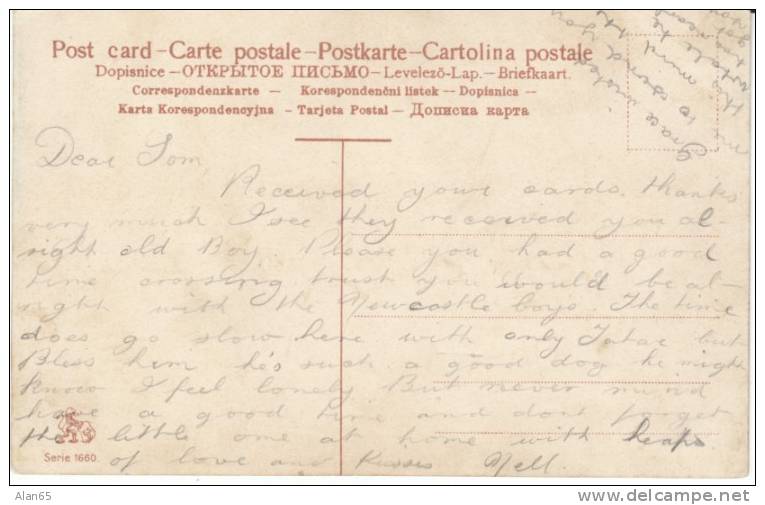 Post card – Carte postale – Postkarte – Cartolina postale
Dopisnice – ОТКРЫТОЕ ПИСЬМО – Levelező-Lap. – Briefkaart.
Correspondenzkarte – Korespondenčni listek – Dopisnica –
Karta Korespondencyjna – Tarjeta Postal – Дописна карта
Grace
to send the
Dear Tom,
Received your cards. thanks
very much I see they received you al-
right old Boy. Please you had a good
time crossing trust you would be al-
right with the Newcastle boys. The time
does go slow here with only Tatar but
Bless him he's such a good dog he might
know I feel lonely But never mind
have a good time and dont forget
the little one at home with heaps
of love and Kisses Nell.
Serie 1660.
Alan65
www.delcampe.net